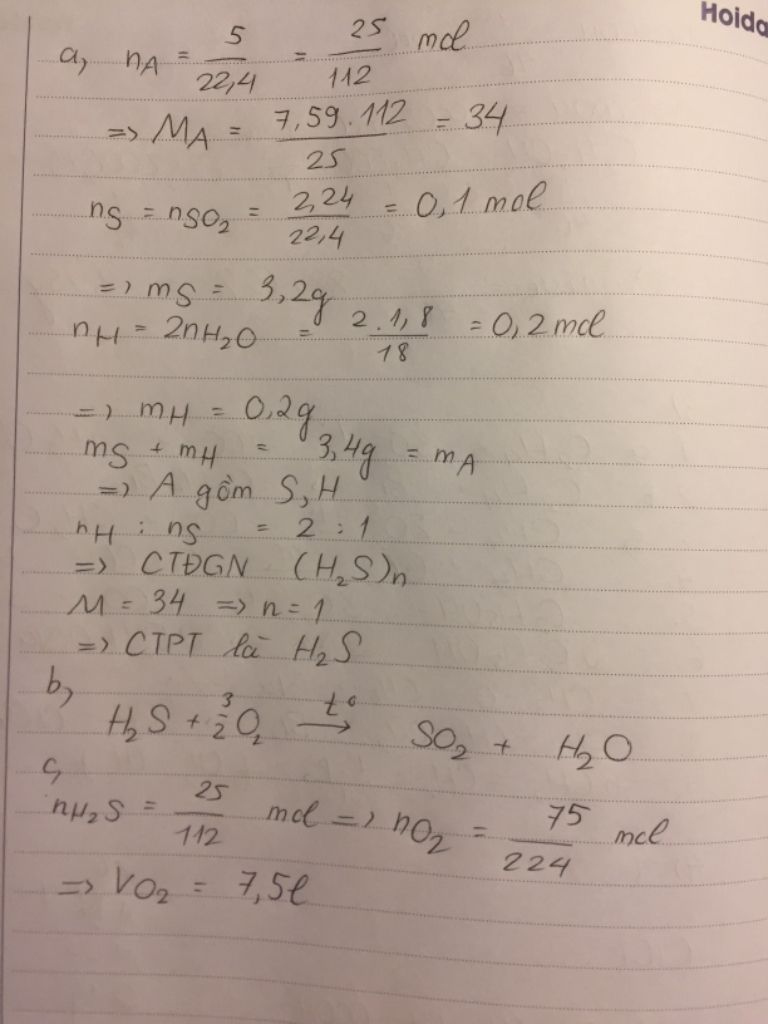 Hoida
a, nA = 5/22,4 = 25/112 mol
=> MA = 7,59.112/25 = 34
nS = nSO₂ = 2,24/22,4 = 0,1 mol
=> mS = 3,2g
nH = 2nH₂O = 2.1,8/18 = 0,2 mol
=> mH = 0,2g
mS + mH = 3,4g = mA
=> A gồm S, H
nH : nS = 2 : 1
=> CTĐGN (H₂S)n
M = 34 => n = 1
=> CTPT là H₂S
b,
H₂S + 3/2 O₂ →(t°) SO₂ + H₂O
c,
nH₂S = 25/112 mol => nO₂ = 75/224 mol
=> VO₂ = 7,5l